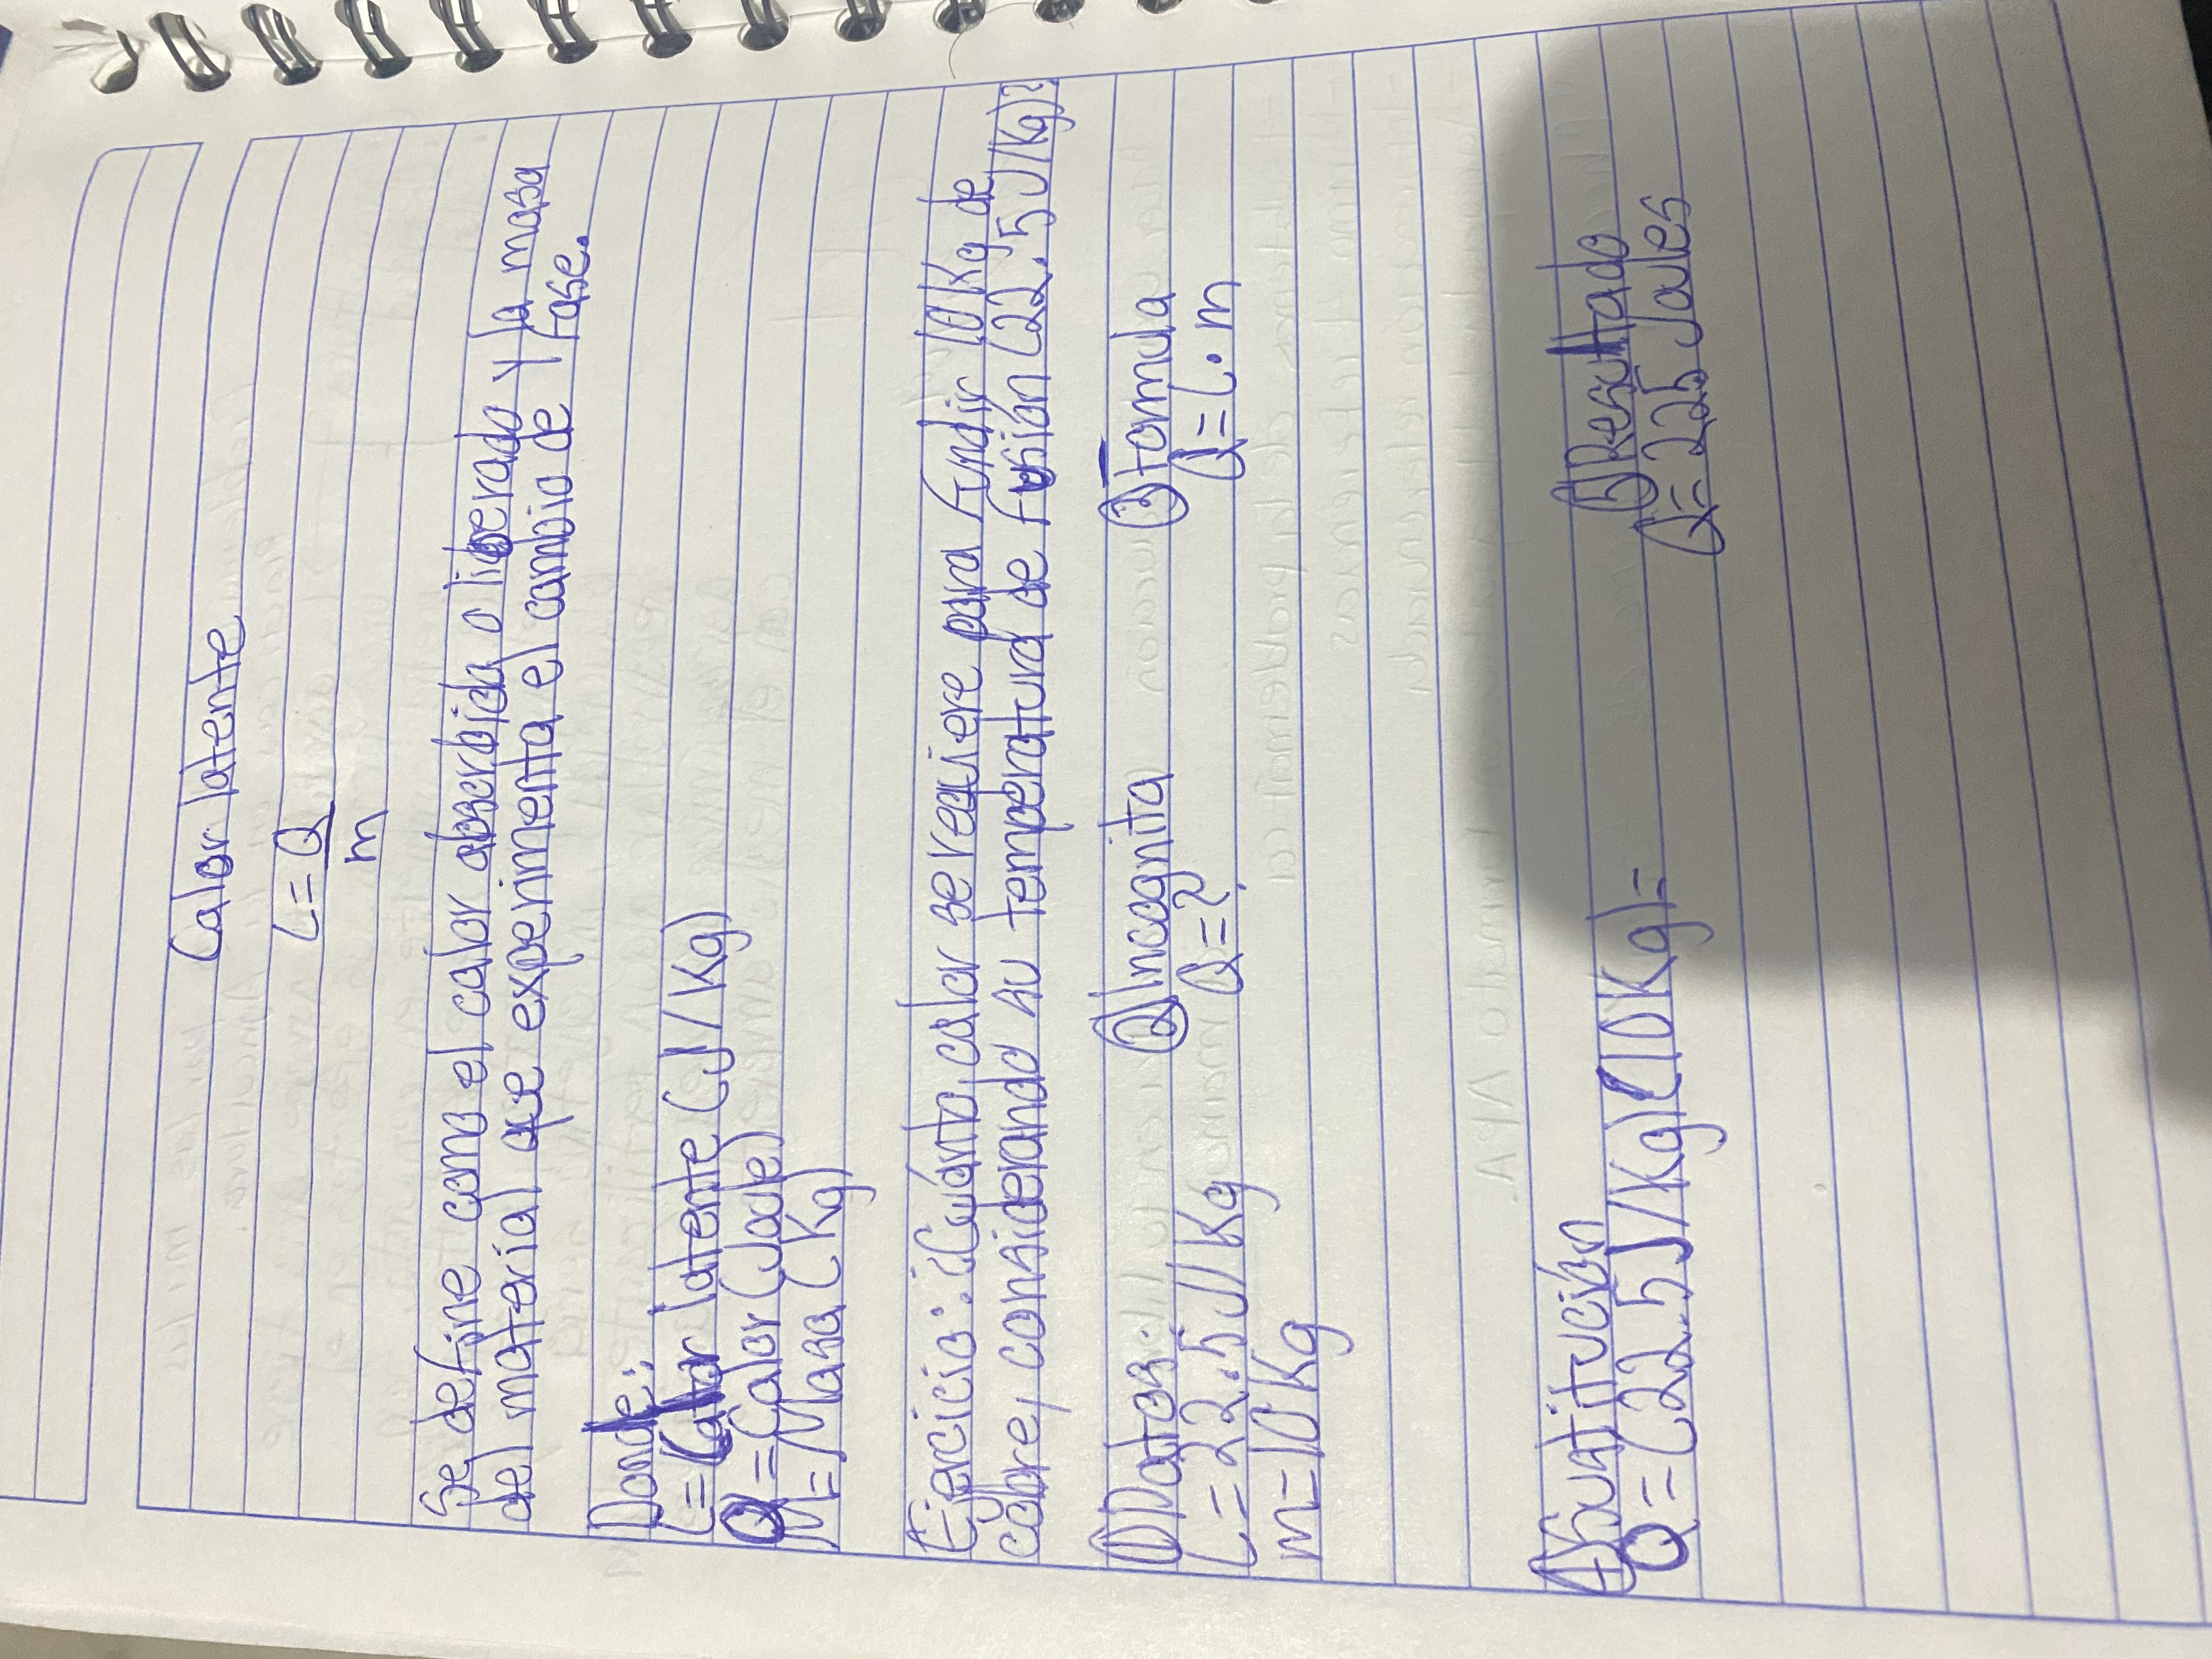 Calor latente
L=Q
m
Se define como el calor abserbido o liberado y la masa
del material que experimenta el cambio de fase.
Donde:
L=Calor latente (J/Kg)
Q=Calor (Joule)
M=Masa (Kg)
Ejercicio: ¿Cuánto calor se requiere para fundir 10 Kg de
cobre, considerando su temperatura de fusión (22.5 J/Kg)?
①Datos ②Incognita ③Formula
L=22.5 J/Kg Q=? Q=L·m
m=10Kg
④Sustitución ⑤Resultado
Q=(22.5J/Kg)(10Kg)= Q=225 Joules